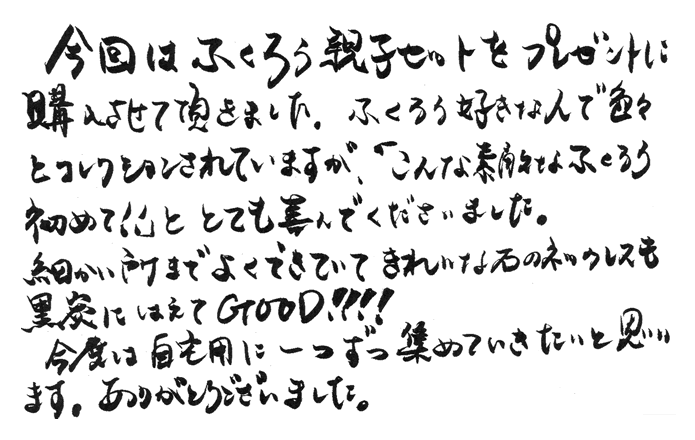 今回はふくろう親子セットをプレゼントに
購入させて頂きました。ふくろう好きなんで色々
とコレクションされていますが、「こんな素敵なふくろう
初めて!!」ととても喜んでくださいました。
細かい所までよくできていてきれいな石のネックレスも
黒炭にはえてGOOD!!!!
今度は自宅用に一つずつ集めていきたいと思い
ます。ありがとうございました。